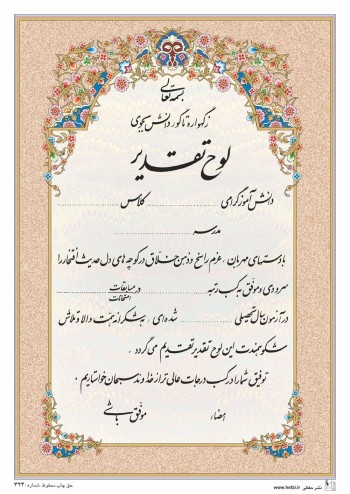 بسمه تعالی
ز گهواره تا گور دانش بجوی
لوح تقدیر
دانش آموز گرامی کلاس
مدرسه
با دستهای مهربان، عزم راسخ و ذهن خلاق در کوچه های دل حدیث افتخار را
سرودی و موفق به کسب رتبه در مسابقات امتحانات
در آزمون سال تحصیلی شده ای، به شکرانه همت والا و تلاش
شکوهمندت این لوح تقدیر تقدیم می گردد.
توفیق شما را در کسب درجات عالی تر از خداوند سبحان خواستاریم.
امضاء: موفق باشی
نشر حفظی www.hefzi.ir حق چاپ محفوظ شماره: ۳۲۳